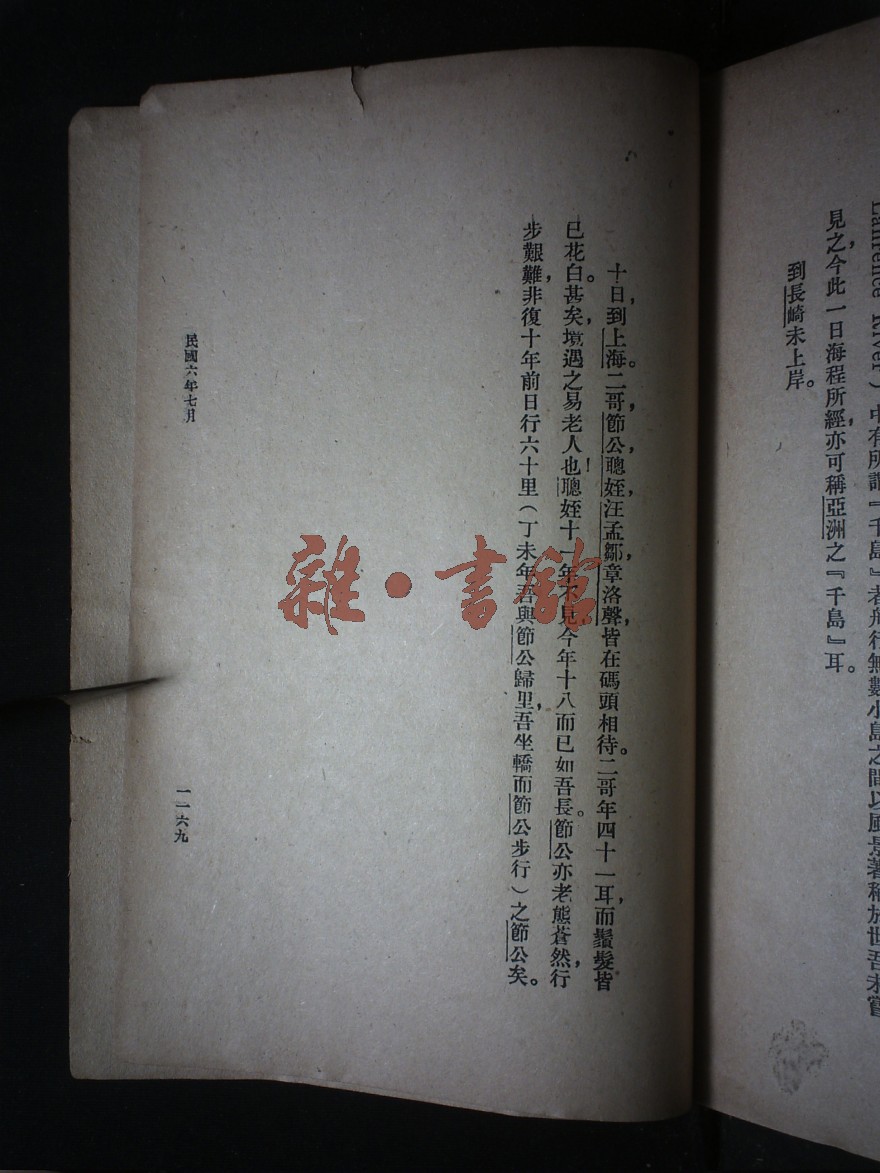 Laurence River）中有所謂『千島』者舟行無數小島之間以風景著稱於世吾未嘗
見之，今此一日海程所經，亦可稱亞洲之『千島』耳。
到長崎未上岸。
十日，到上海。二哥，節公，聰姪，汪孟鄒，章洛聲，皆在碼頭相待。二哥年四十一耳，而鬚髮皆
已花白甚矣，境遇之易老人也！聰姪十一年不見，今年十八而已如吾長。節公亦老態蒼然，行
步艱難，非復十年前日行六十里（丁未年吾與節公歸里，吾坐轎而節公步行）之節公矣。
民國六年七月
一一六九
雜·書館